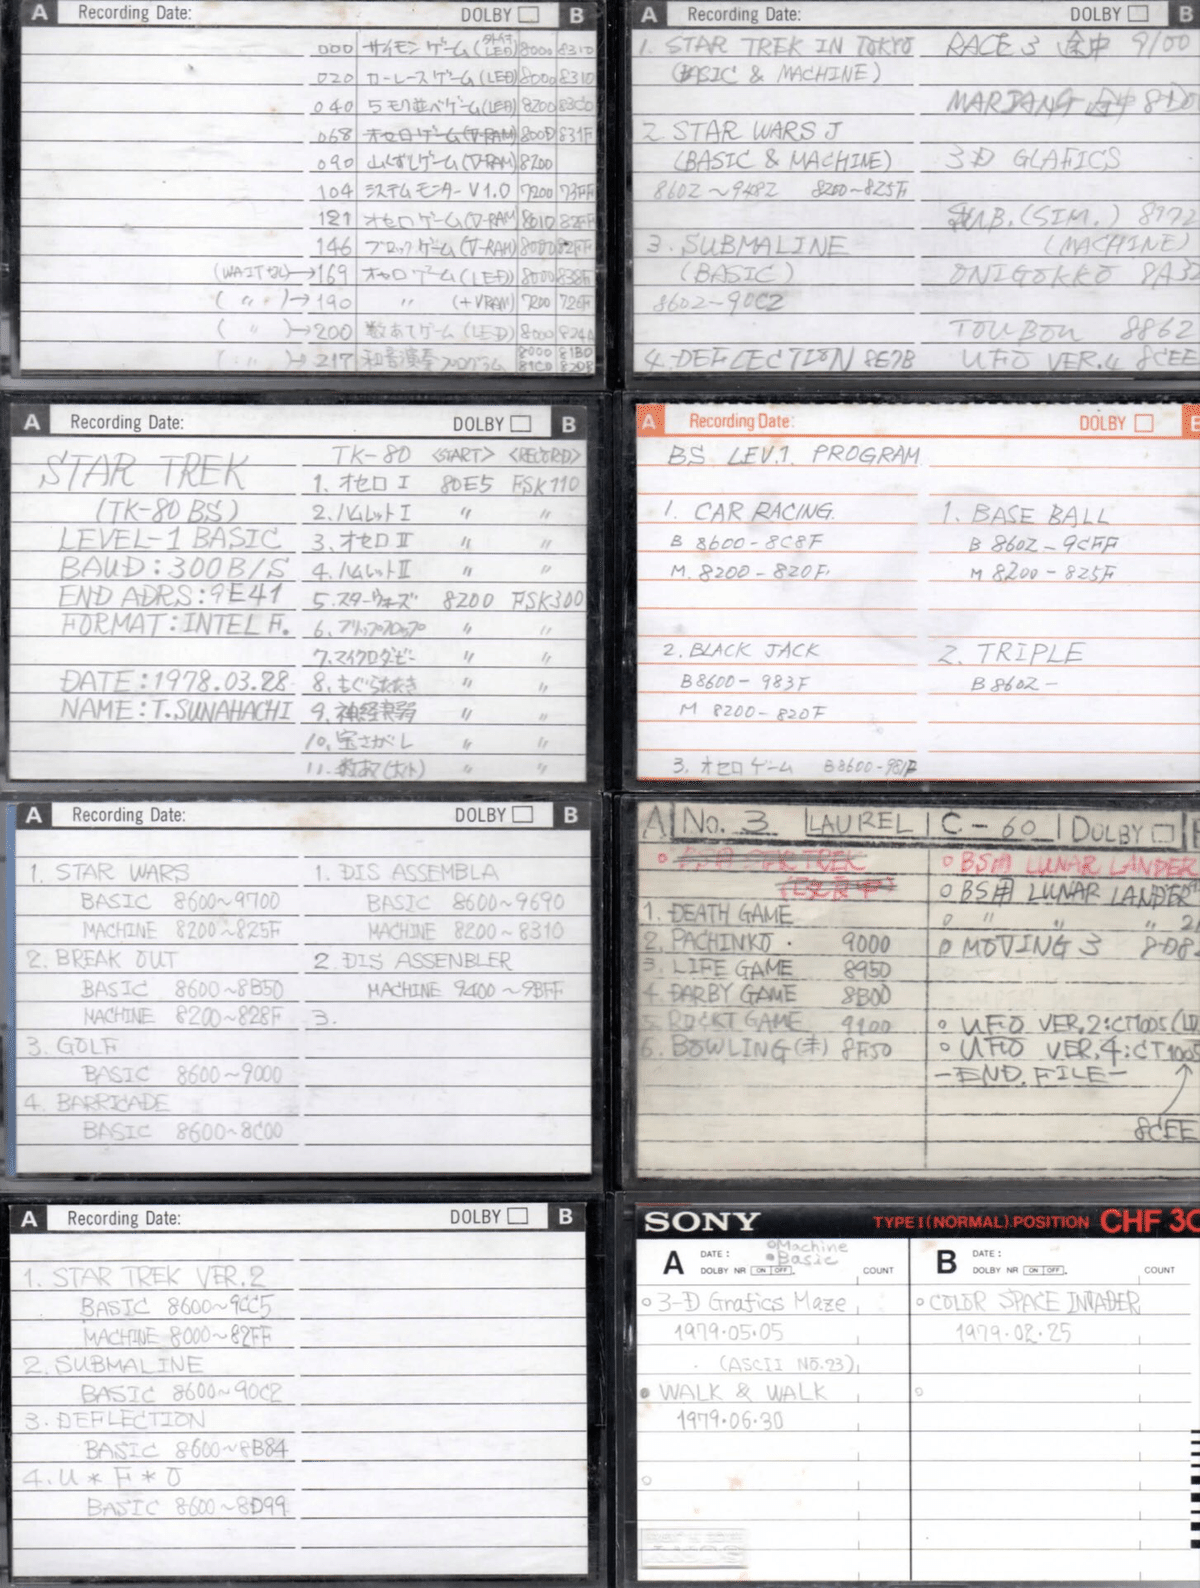 A Recording Date: DOLBY B
000 サイモンゲーム( LED) 8000 8310
020 カーレースゲーム(LED) 8000 8310
040 5モク並べゲーム(LED) 8200 83C0
068 オセロゲーム(V-RAM) 800D 831F
090 山くずしゲーム(V-RAM) 8200
104 システムモニターV1.0 7200 73FF
121 オセロゲーム(V-RAM) 8010 82FF
146 ブロックゲーム(V-RAM) 8000 82FF
(WAITなし)→169 オセロゲーム(LED) 8000 838F
( 〃 )→190 〃 (+VRAM) 7200 726F
( 〃 )→200 数あてゲーム(LED) 8000 824A
( 〃 )→217 和音演奏プログラム 8000 81B0
81C0 82DB
A Recording Date: DOLBY B
1. STAR TREK IN TOKYO
(BASIC & MACHINE)
2. STAR WARS J
(BASIC & MACHINE)
8602~9482 8200~825F
3. SUBMALINE
(BASIC)
8602~90C2
4. DEFLECTION 8E7B
RACE 3 途中 9100
MARJANG 途中
3-D GLAFICS
SUB.(SIM.) 8972
(MACHINE)
ONIGOKKO
TOUBOU 8862
UFO VER.4 8CEE
A Recording Date: DOLBY B
STAR TREK
(TK-80 BS)
LEVEL-1 BASIC
BAUD:300B/S
END ADRS:9E41
FORMAT:INTEL F.
DATE:1978.03.28
NAME:T.SUNAHACHI
TK-80 <START> <RECORD>
1. オセロ I 80E5 FSK110
2. ハムレット I 〃 〃
3. オセロ II 〃 〃
4. ハムレット II 〃 〃
5. スターウォーズ 8200 FSK300
6. フリップフロップ 〃 〃
7. マイクロダービー 〃 〃
8. もぐらたたき 〃 〃
9. 神経衰弱 〃 〃
10. 宝さがし 〃 〃
11. 数あて(大小) 〃 〃
A Recording Date: DOLBY
BS LEV.1. PROGRAM
1. CAR RACING.
B 8600-8C8F
M. 8200-820F
2. BLACK JACK
B8600-983F
M 8200-820F
3. オセロゲーム B8600-981F
1. BASE BALL
B 8602-9CFF
M 8200-825F
2. TRIPLE
B 8602-
A Recording Date: DOLBY B
1. STAR WARS
BASIC 8600~9700
MACHINE 8200~825F
2. BREAK OUT
BASIC 8600~8B50
MACHINE 8200~828F
3. GOLF
BASIC 8600~9000
4. BARRICADE
BASIC 8600~8C00
1. DIS ASSEMBLA
BASIC 8600~9690
MACHINE 8200~8310
2. DIS ASSENBLER
MACHINE 9400~9BFF
3.
A No. 3 LAUREL C-60 DOLBY
STAR TREK
1. DEATH GAME
2. PACHINKO. 9000
3. LIFE GAME 8950
4. DARBY GAME 8B00
5. ROCKT GAME 9100
6. BOWLING(未) 8F50
○ BS用 LUNAR LANDER
○ BS用 LUNAR LANDER
○ 〃 〃 〃
○ MOVING 3
○ UFO VER.2:CT1005
○ UFO VER.4:CT1005
-END.FILE-
8CEE
A Recording Date: DOLBY B
1. STAR TREK VER.2
BASIC 8600~9CC5
MACHINE 8000~82FF
2. SUBMALINE
BASIC 8600~90C2
3. DEFLECTION
BASIC 8600~8B84
4. U*F*O
BASIC 8600~8D99
SONY TYPE I (NORMAL) POSITION CHF 30
A DATE: ○Machine
●Basic
DOLBY NR ON OFF COUNT
○ 3-D Grafics Maze
1979.05.05
(ASCII NO.23)
● WALK & WALK
1979.06.30
B DATE:
DOLBY NR ON OFF COUNT
○ COLOR SPACE INVADER
1979.02.25